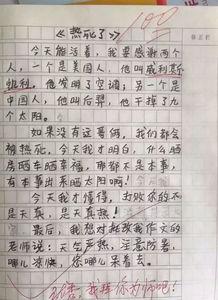 《热死了》
100
今天能活着，我要感谢两个
人，一个是美国人，他叫威利斯
凯利。他发明了空调；另一个是
中国人，他叫后羿，他干掉了九
个太阳。
如果没有这哥俩，我们都会
被热死。今天我才明白，什么晒
房晒车晒幸福，那都不是本事，
有本事出来晒太阳啊！
今天我才懂得，打败你的不
是天真，是天真热！
最后，我想对批改我作文的
老师说：天气严热，注意防暑，
哪儿凉快，您哪儿呆着去。
我拜你为师吧！